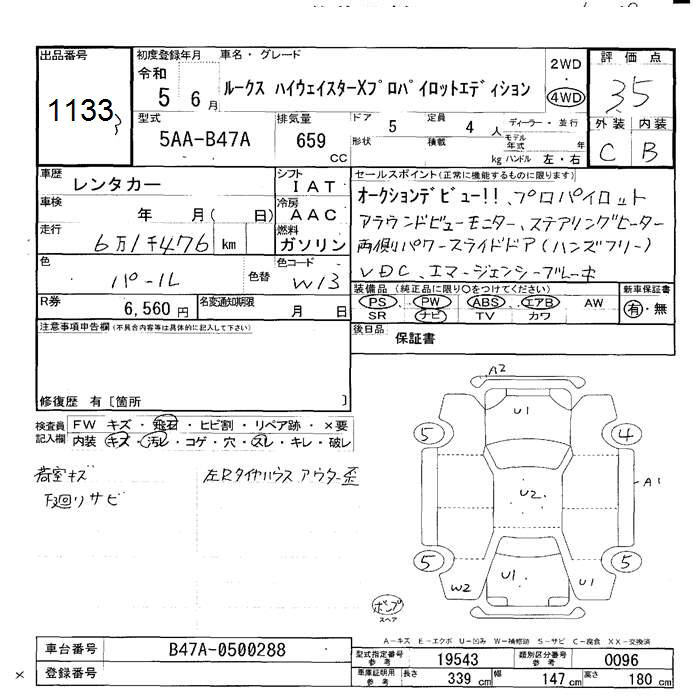 出品番号 初度登録年月 車名・グレード 2WD 評価点
1133 令和 5 6月 ルークス ハイウェイスターXプロパイロットエディション 4WD 35
型式 排気量 ドア 5 定員 4人 ディーラー・並行 外装 内装
5AA-B47A 659cc 形状 積載 kg モデル年式 年 ハンドル 左・右 C B
車歴 レンタカー シフト IAT セールスポイント(正常に機能するものに限ります)
車検 年 月(日) 冷房 AAC オークションデビュー!!、プロパイロット
走行 6万1千476 km 燃料 ガソリン アラウンドビューモニター、ステアリングヒーター
両側パワースライドドア(ハンズフリー)
色 パール 色替 色コード W13 VDC、エマージェンシーブレーキ
R券 6,560円 名変通知期限 月 日 装備品(純正品に限り○をつけてください) 新車保証書
PS PW ABS エアB AW 有・無
SR ナビ TV カワ
注意事項申告欄(不具合内容等は具体的に記入して下さい) 後日品 保証書
修復歴 有[箇所 ]
検査員記入欄 FW キズ・飛石・ヒビ割・リペア跡・×要
内装 キズ・汚レ・コゲ・穴・スレ・キレ・破レ
荷室キズ 左Rタイヤハウス アウター歪
下廻リサビ
A2
U1
5 4
A1
U2
5 5
W2 U1 U1
ポンプ
スペア
A-キズ E-エクボ U-凹み W-補修跡 S-サビ C-腐食 XX-交換済
車台番号 B47A-0500288 型式指定番号 参考 19543 類別区分番号 参考 0096
× 登録番号 車庫証明用 参考 長さ 339cm 幅 147cm 高さ 180cm